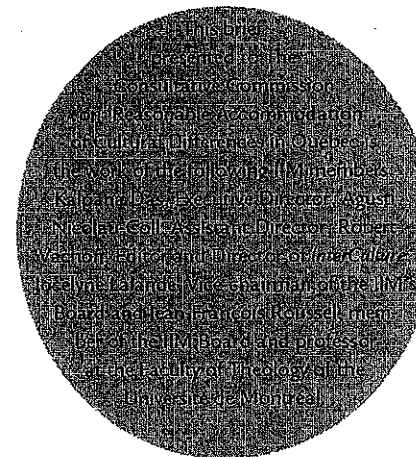 This brief
presented to the
Consultative Commission
on Reasonable Accommodation
of Cultural Differences in Quebec is
the work of the following IIM members:
Kalpana Das, Executive Director; Agusti
Nicolau-Coll, Assistant Director; Robert
Vachon, Editor and Director of InterCulture;
Jocelyne Lalande, Vice-chairman of the IIM's
Board and Jean-François Roussel, mem-
ber of the IIM Board and professor
at the Faculty of Theology of the
Université de Montréal